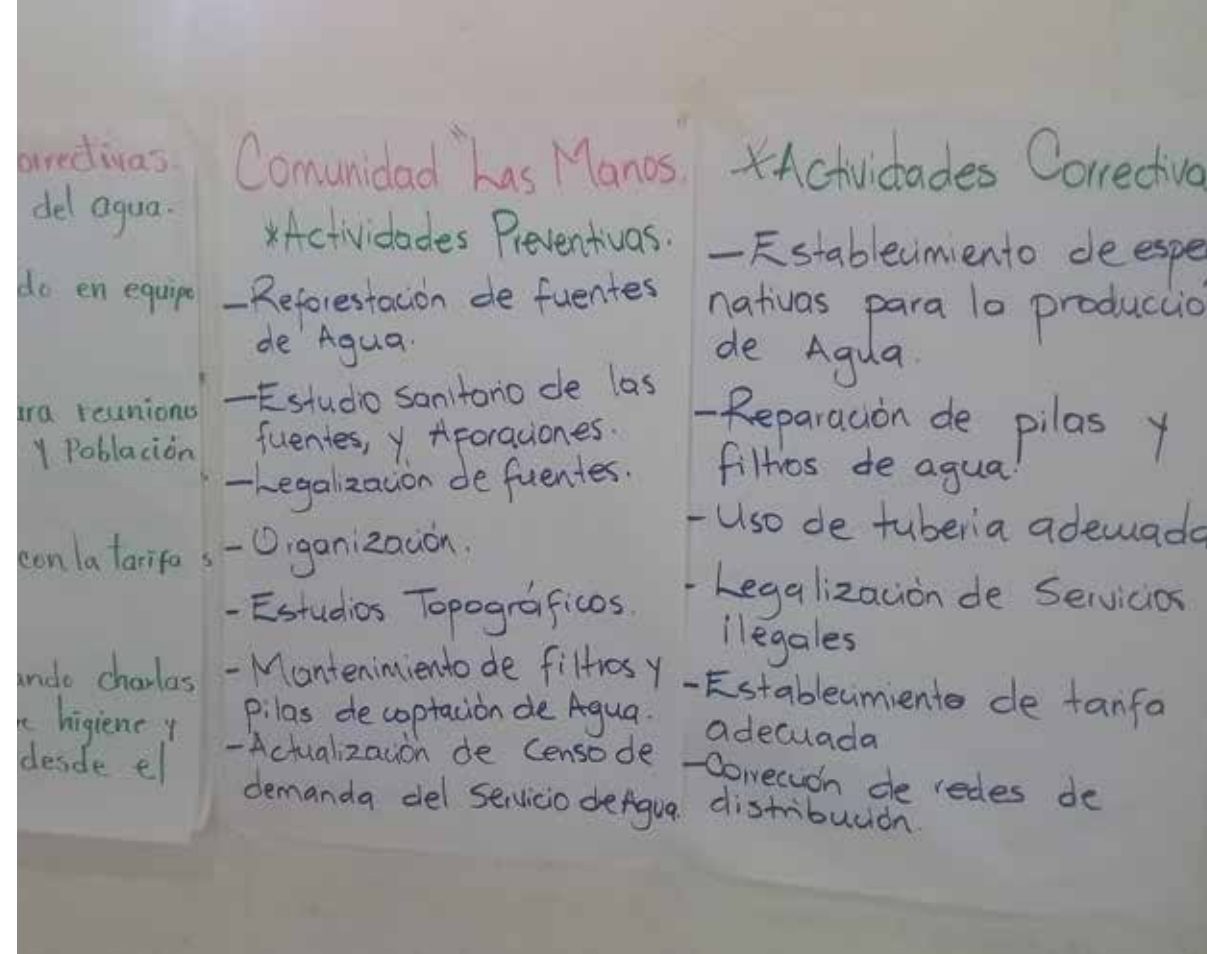 orrectivas.
del agua.
do en equipo
ara reuniones
y Población
con la tarifa s
ando charlas
e higiene y
desde el
Comunidad "Las Manos."
*Actividades Preventivas.
-Reforestación de fuentes
de Agua.
-Estudio sanitario de las
fuentes, y Aforaciones.
-Legalización de fuentes.
-Organización.
-Estudios Topográficos.
-Mantenimiento de filtros y
pilas de captación de Agua.
-Actualización de Censo de
demanda del Servicio de Agua.
*Actividades Correctiva
-Establecimiento de espe
nativas para la producció
de Agua.
-Reparación de pilas y
filtros de agua.
-Uso de tuberia adecuada
-Legalización de Servicios
ilegales
-Establecimiento de tarifa
adecuada
-Corrección de redes de
distribución.